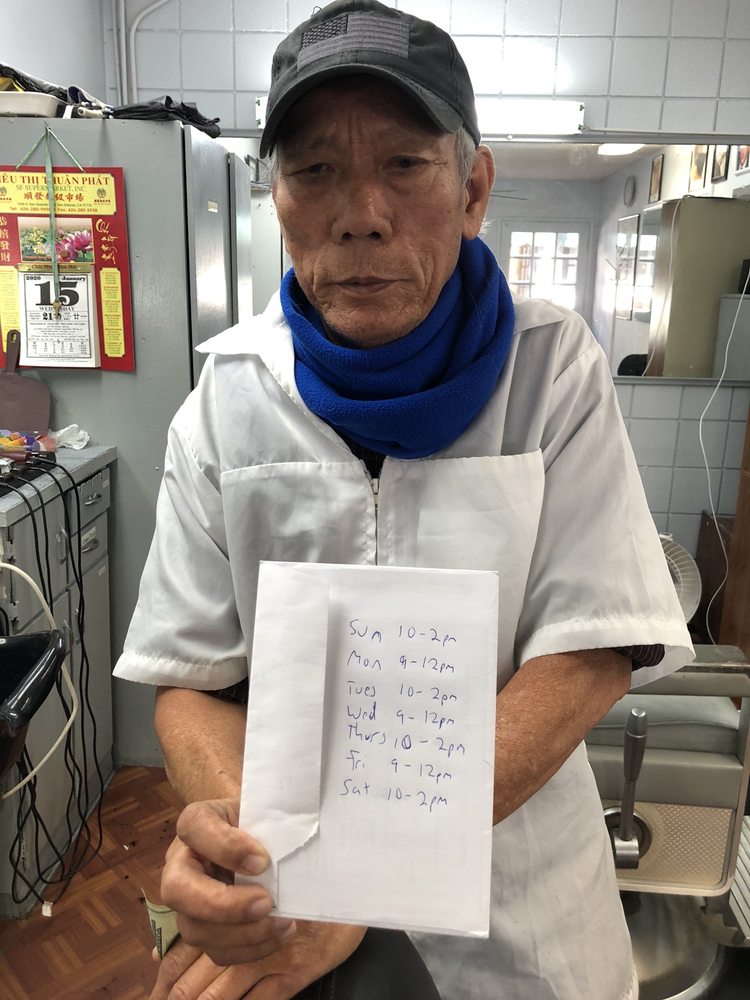 ÊU THỊ THUẬN PHÁT
SF SUPERMARKET, INC
順發超級市場
恭禧發財
2020
January
15
WEDNESDAY
21
Sun 10-2pm
Mon 9-12pm
Tues 10-2pm
Wed 9-12pm
Thurs 10-2pm
Fri 9-12pm
Sat 10-2pm